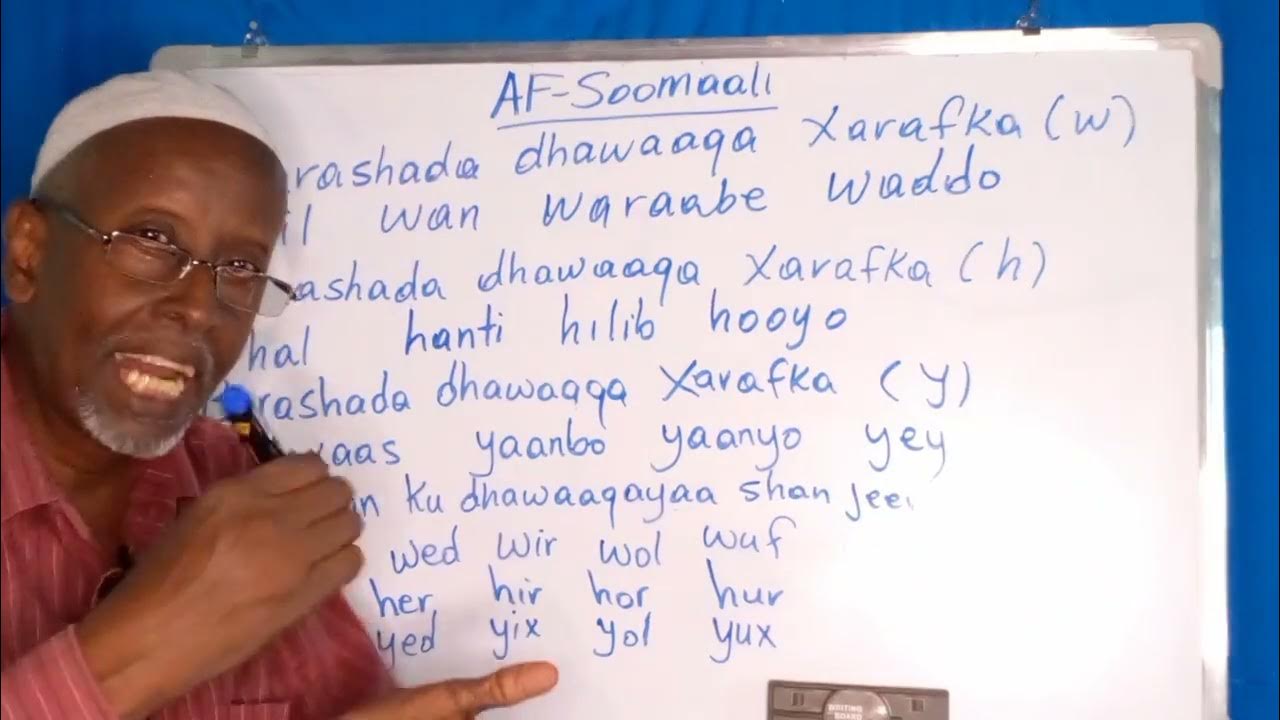 AF-Soomaali
rashada dhawaaqa Xarafka (w)
il wan waraabe waddo
ashada dhawaaqa Xarafka (h)
hal hanti hilib hooyo
rashada dhawaaqa Xarafka (y)
yaanbo yaanyo yey
ku dhawaaqayaa shan jee
wed wir wol wuf
her hir hor hur
yed yix yol yux
WRITING BOARD